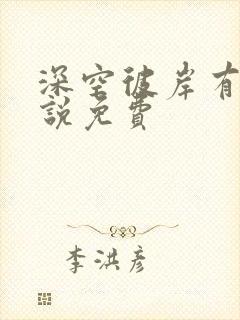 深空彼岸有
說免費
李洪彦